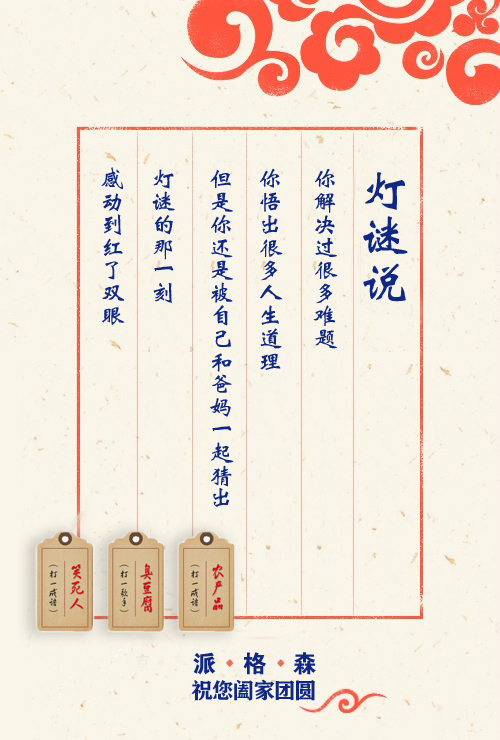 灯谜说
你解决过很多难题
你悟出很多人生道理
但是你还是被自己和爸妈一起猜出
灯谜的那一刻
感动到红了双眼
农产品
(打一成语)
臭豆腐
(打一歌手)
笑死人
(打一成语)
派·格·森
祝您阖家团圆